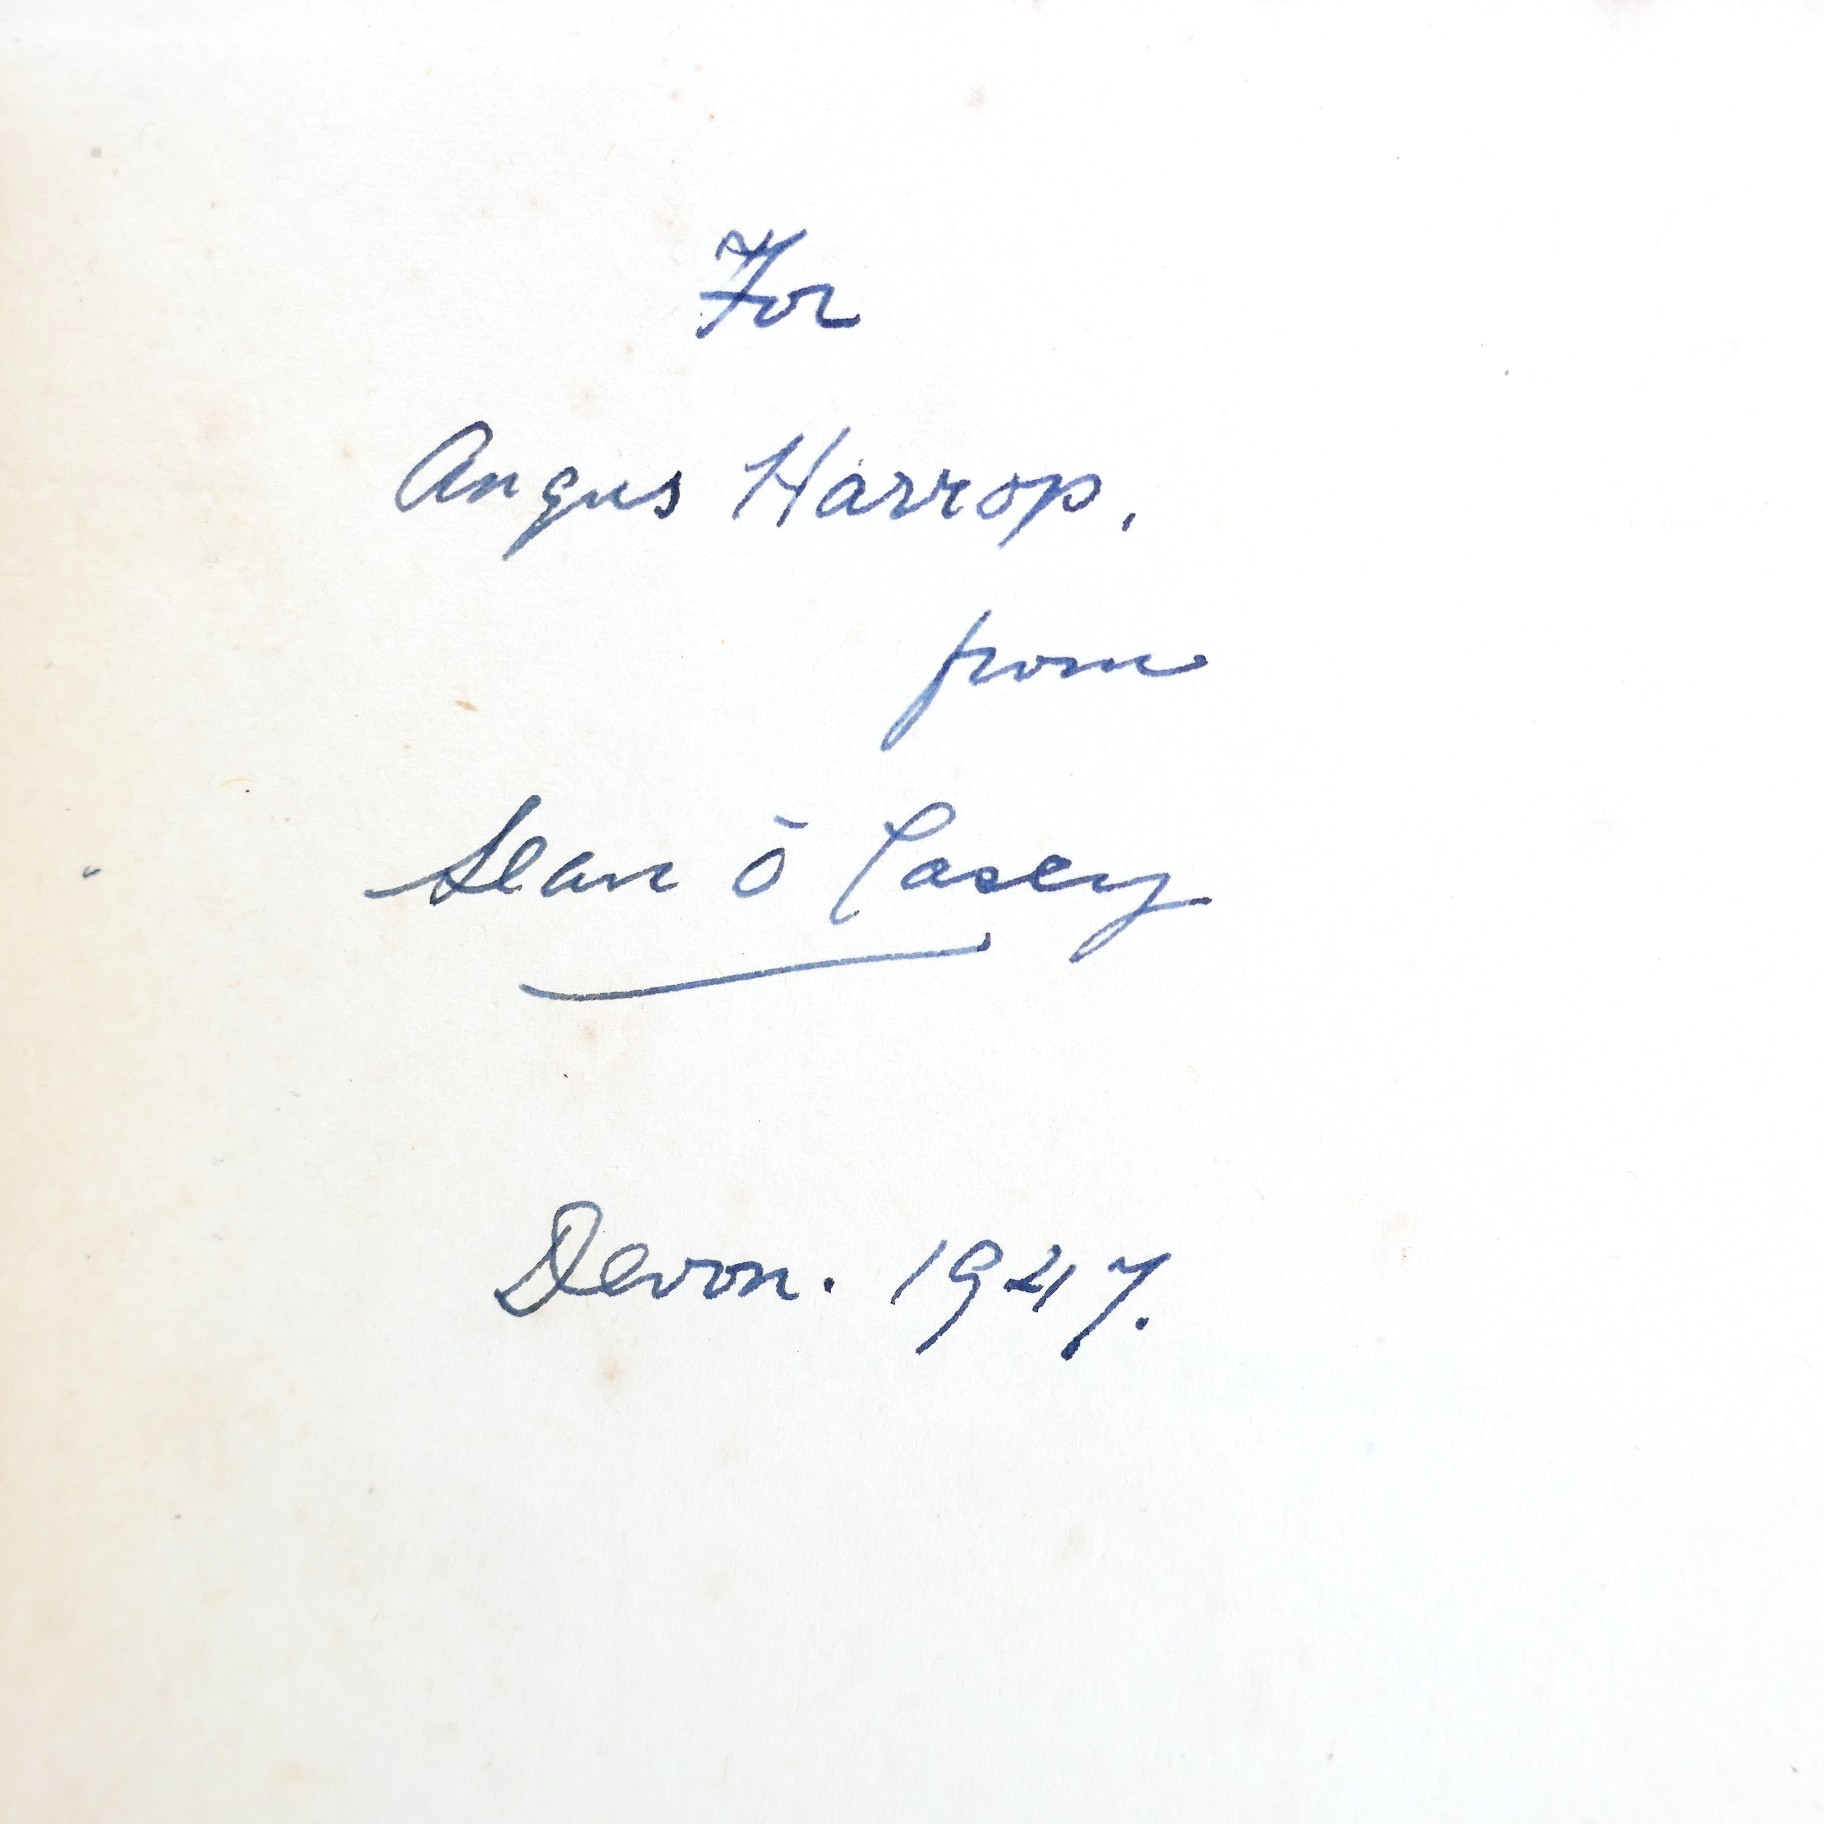 For
Angus Harrop.
from
Sean Ō Casey
Devon. 1947.